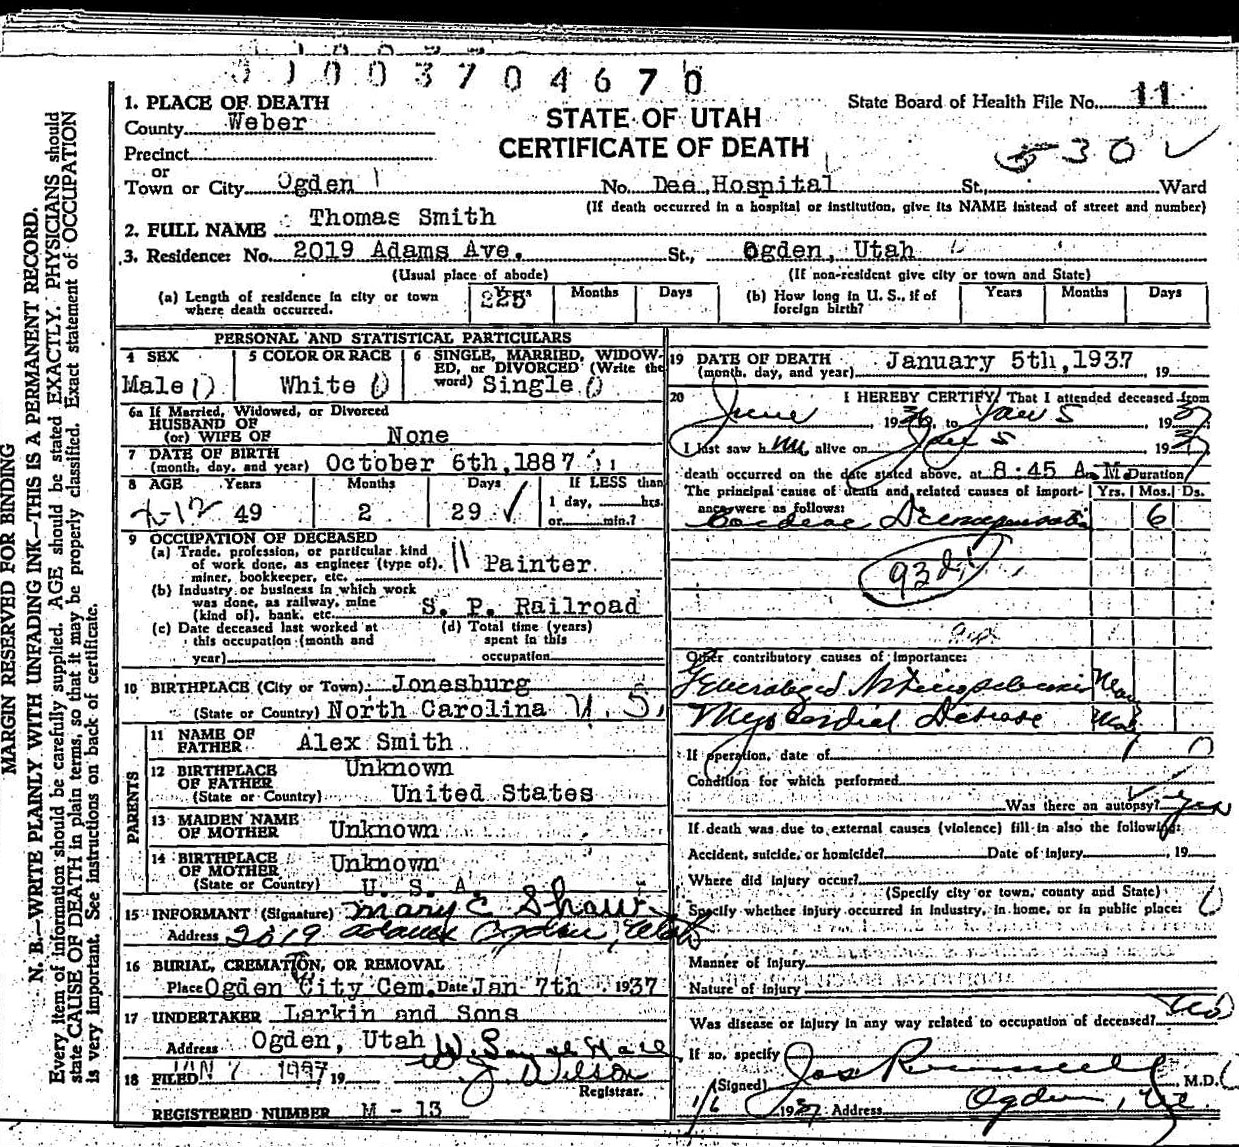 0 1 0 0 3 7 0 4 6 7 0
MARGIN RESERVED FOR BINDING
N. B.—WRITE PLAINLY WITH UNFADING INK—THIS IS A PERMANENT RECORD.
Every item of information should be carefully supplied. AGE should be stated EXACTLY. PHYSICIANS should
state CAUSE OF DEATH in plain terms, so that it may be properly classified. Exact statement of OCCUPATION
is very important. See instructions on back of certificate.
STATE OF UTAH
CERTIFICATE OF DEATH
State Board of Health File No. 11
530
1. PLACE OF DEATH
County Weber
Precinct
or
Town or City Ogden No. Dee Hospital St., Ward
(If death occurred in a hospital or institution, give its NAME instead of street and number)
2. FULL NAME Thomas Smith
3. Residence: No. 2019 Adams Ave. St., Ogden, Utah
(Usual place of abode) (If non-resident give city or town and State)
(a) Length of residence in city or town where death occurred. Years Months Days
(b) How long in U. S., if of foreign birth? Years Months Days
PERSONAL AND STATISTICAL PARTICULARS
4 SEX Male
5 COLOR OR RACE White
6 SINGLE, MARRIED, WIDOWED, or DIVORCED (Write the word) Single
6a If Married, Widowed, or Divorced
HUSBAND OF
(or) WIFE OF None
7 DATE OF BIRTH
(month, day, and year) October 6th, 1887
8 AGE Years Months Days If LESS than
49 2 29 1 day, hrs.
or min.?
9 OCCUPATION OF DECEASED
(a) Trade, profession, or particular kind
of work done, as engineer (type of),
miner, bookkeeper, etc. Painter
(b) Industry or business in which work
was done, as railway, mine
(kind of), bank, etc. S. P. Railroad
(c) Date deceased last worked at
this occupation (month and
year)
(d) Total time (years)
spent in this
occupation
10 BIRTHPLACE (City or Town) Jonesburg
(State or Country) North Carolina U.S.
PARENTS
11 NAME OF
FATHER Alex Smith
12 BIRTHPLACE
OF FATHER Unknown
(State or Country) United States
13 MAIDEN NAME
OF MOTHER Unknown
14 BIRTHPLACE
OF MOTHER Unknown
(State or Country) U. S. A.
15 INFORMANT (Signature) Mary C Shaw
Address 2019 Adams Ogden, Utah
16 BURIAL, CREMATION, OR REMOVAL
Place Ogden City Cem. Date Jan 7th 1937
17 UNDERTAKER Larkin and Sons
Address Ogden, Utah
18 FILED JAN 7 1937 19
Wilson
Registrar.
REGISTERED NUMBER M - 13
19 DATE OF DEATH
(month, day, and year) January 5th, 1937 19
20 I HEREBY CERTIFY, That I attended deceased from
June, 1936, to Jan 5 1937
I last saw him alive on Jan 5 1937
death occurred on the date stated above, at 8:45 A.M. Duration
The principal cause of death and related causes of importance were as follows: Yrs. Mos. Ds.
Cardiac Decompensation 6
Other contributory causes of importance:
Generalized Arteriosclerosis Many
Myocardial Disease
If operation, date of
Condition for which performed
Was there an autopsy? Yes
If death was due to external causes (violence) fill in also the following:
Accident, suicide, or homicide? Date of injury , 19
Where did injury occur?
(Specify city or town, county and State)
Specify whether injury occurred in industry, in home, or in public place:
Manner of Injury
Nature of Injury
Was disease or injury in any way related to occupation of deceased? No
If so, specify
(Signed) M.D.
1/6 1937 Address Ogden, Ut.